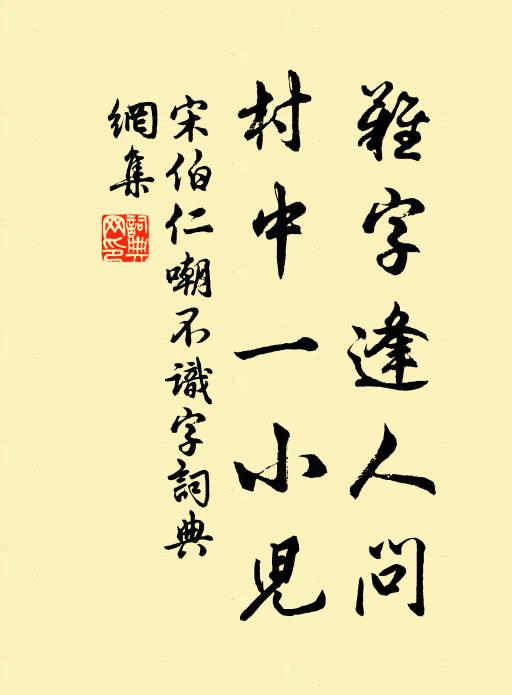 難字逢人問
村中一小兒
宋伯仁嘲不識字詞典
網集
詞典
网印